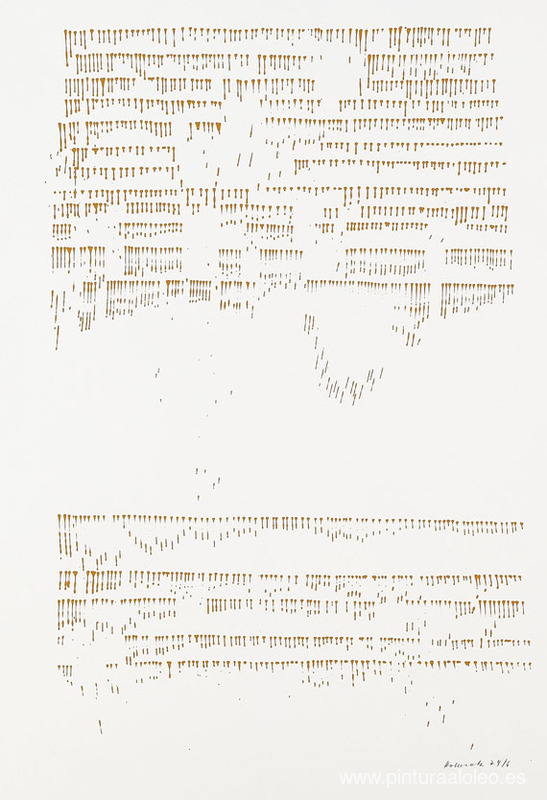 24/6
www.pinturaaloleo.es